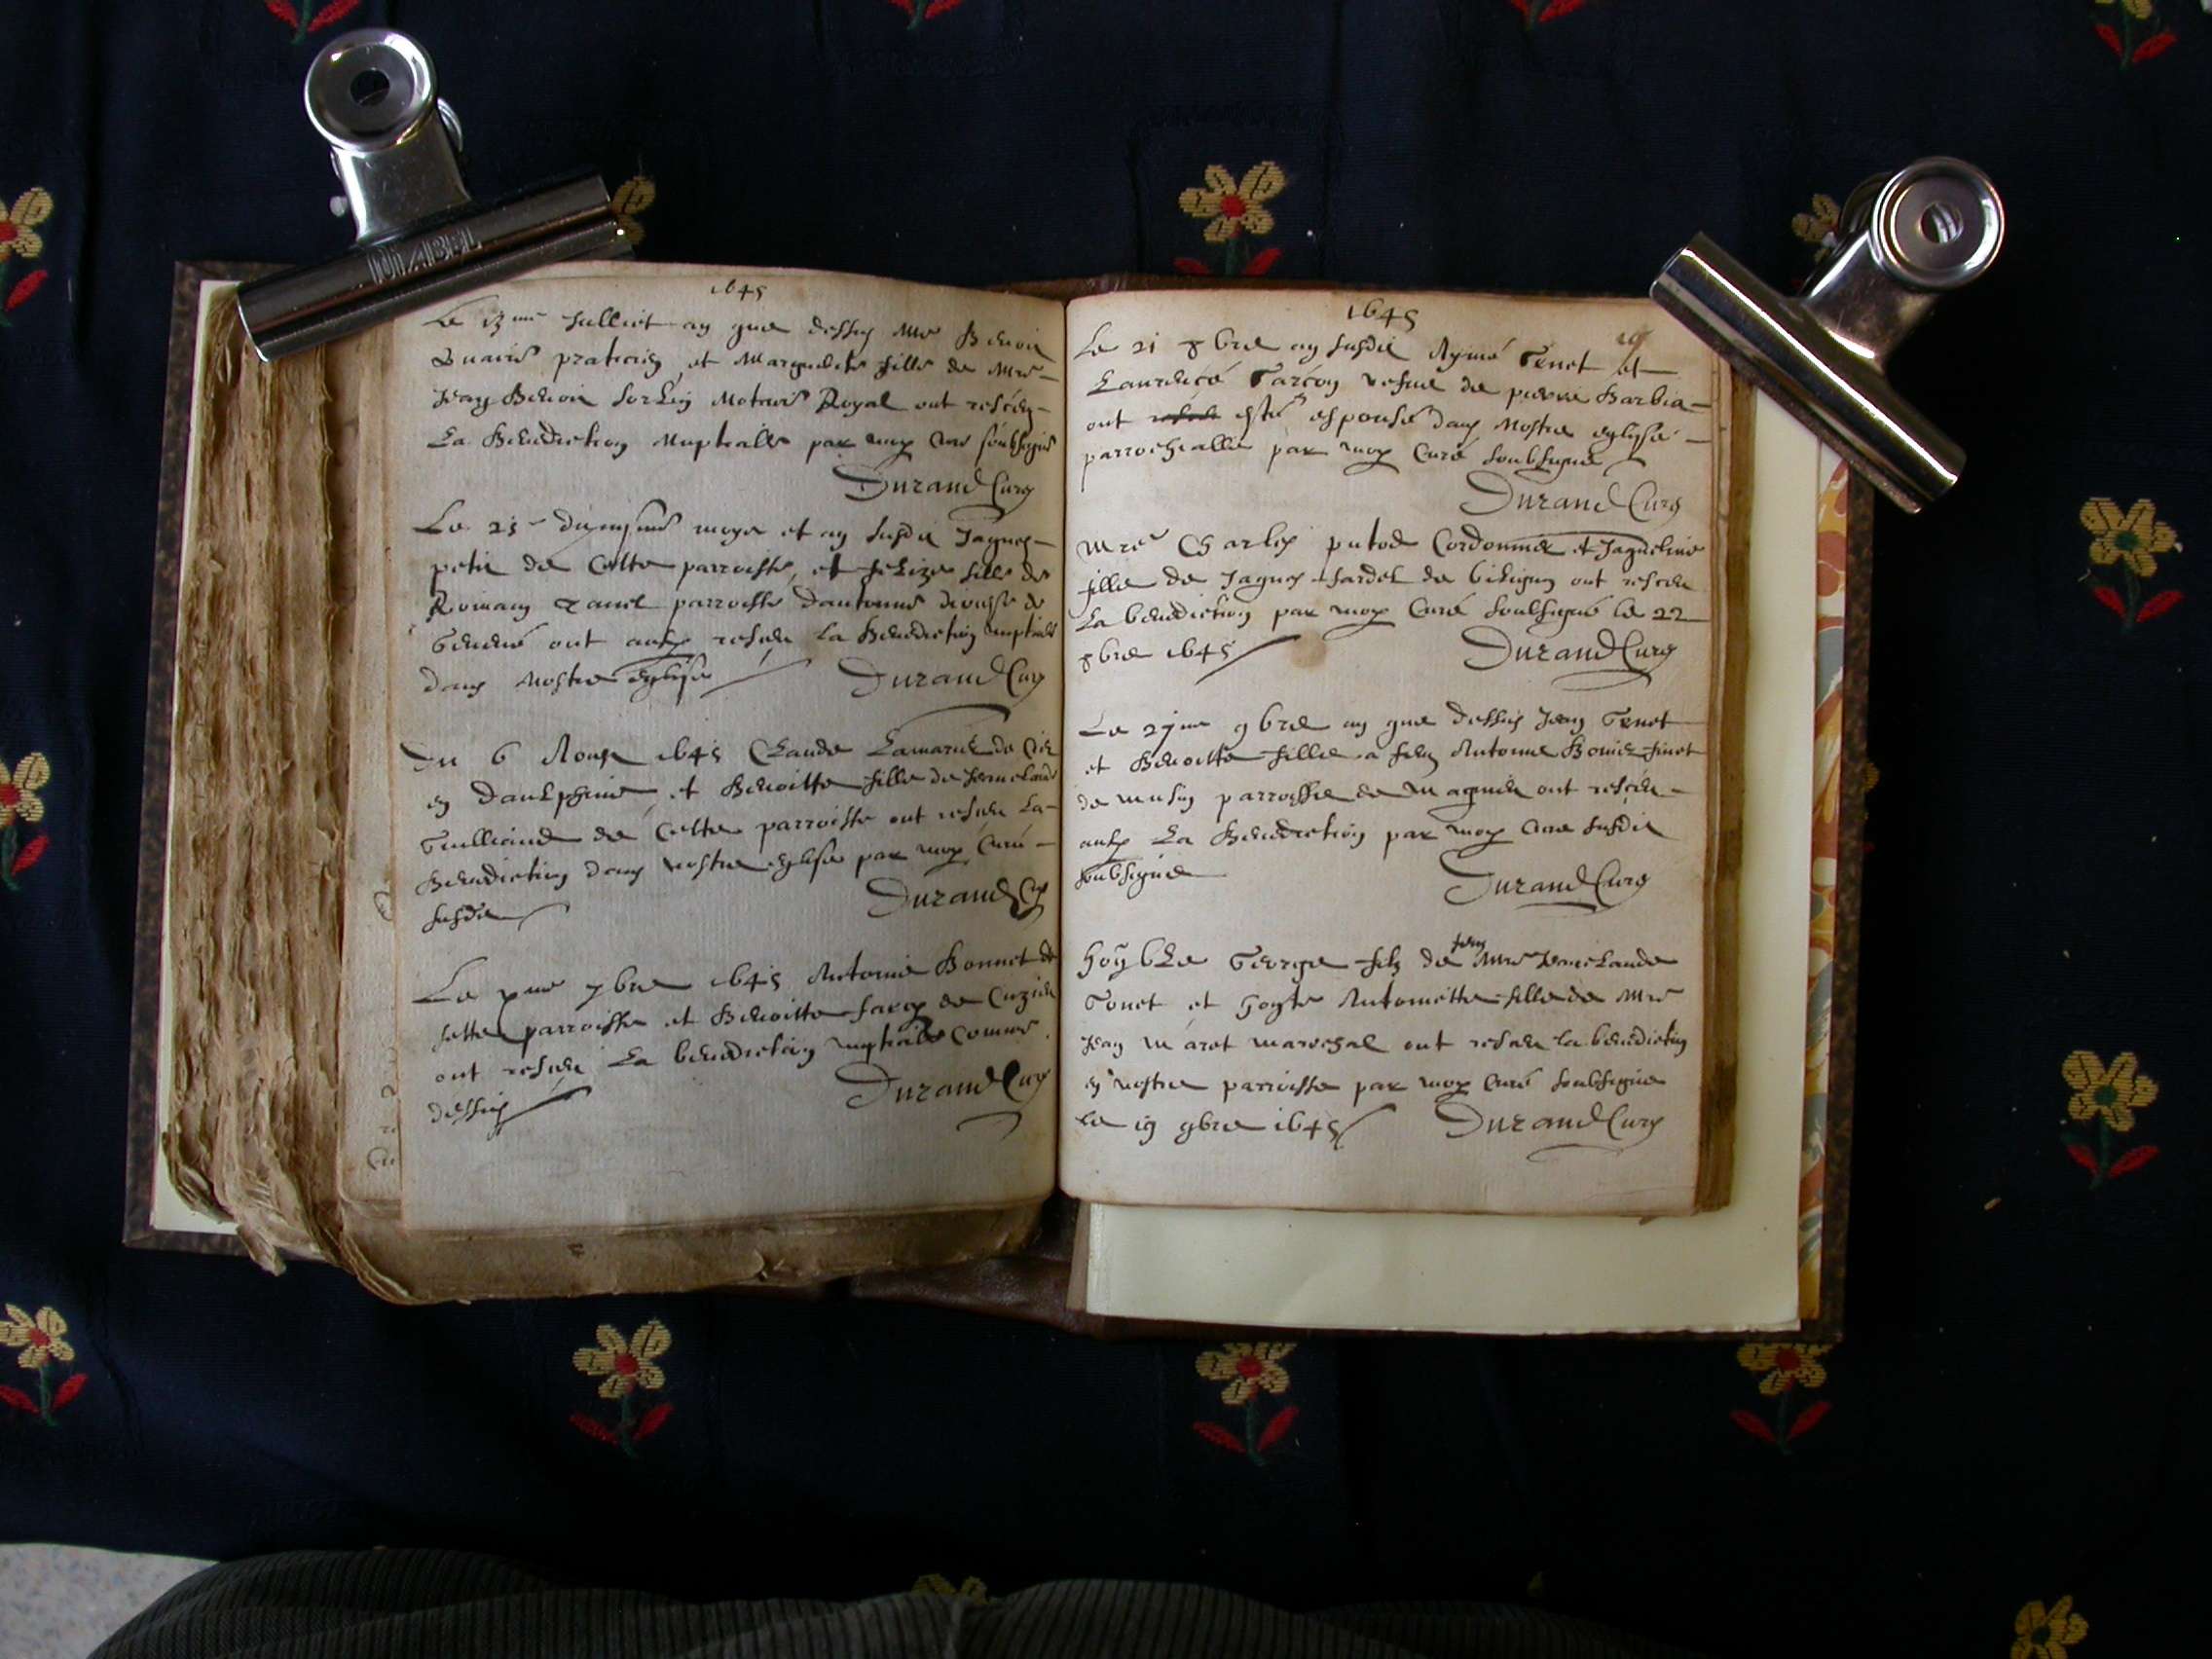 DIABEL
1645
Le 13me Julliet an que dessus Mre Benoit
praticien et Marguerite fille de Mre
Jean Benoit Notaire Royal ont resceu
La Benediction Nuptialle par moy Curé soubsigné
Durand Curé
Le 25e du mesme moys et an susdit Jaques
petit de Cette parroisse, et fille de
Romain parroisse diocese de
Geneve ont aussy resceu la Benediction Nuptialle
dans Nostre eglise Durand Curé
Du 6 Aoust 1645 Claude de
en Daulphiné, et Benoitte fille de
de Cette parroisse ont resceu La
Benediction dans nostre eglise par moy Curé
susdit Durand Curé
Le xme 7bre 1645 Antoine Bonnet de
sette parroisse et Benoitte de Cuzieu
ont resceu La benediction nuptialle Comme
dessus Durand Curé
1645
Le 21 8bre an susdit Aymé Genet et
Laurence Garçon vefve de pierre Barbia
ont esté espousé dans Nostre eglise
parrochialle par moy Curé soubsigné
Durand Curé
Mre Charles putod Cordonnier et Jaqueline
fille de Jaques fardel de ont resceu
La benediction par moy Curé soubsigné le 22
8bre 1645 Durand Curé
Le 9bre an que dessus Jean Genet
et Benoitte fille a feu Antoine
de Musin parroisse de Magnieu ont resceu
aussy La Benediction par moy Curé susdit
soubsigné Durand Curé
George filz de feu Mre
et Antoinette fille de Mre
Jean Maret mareschal ont resceu la benediction
en nostre parroisse par moy Curé soubsigné
le 19 9bre 1645 Durand Curé